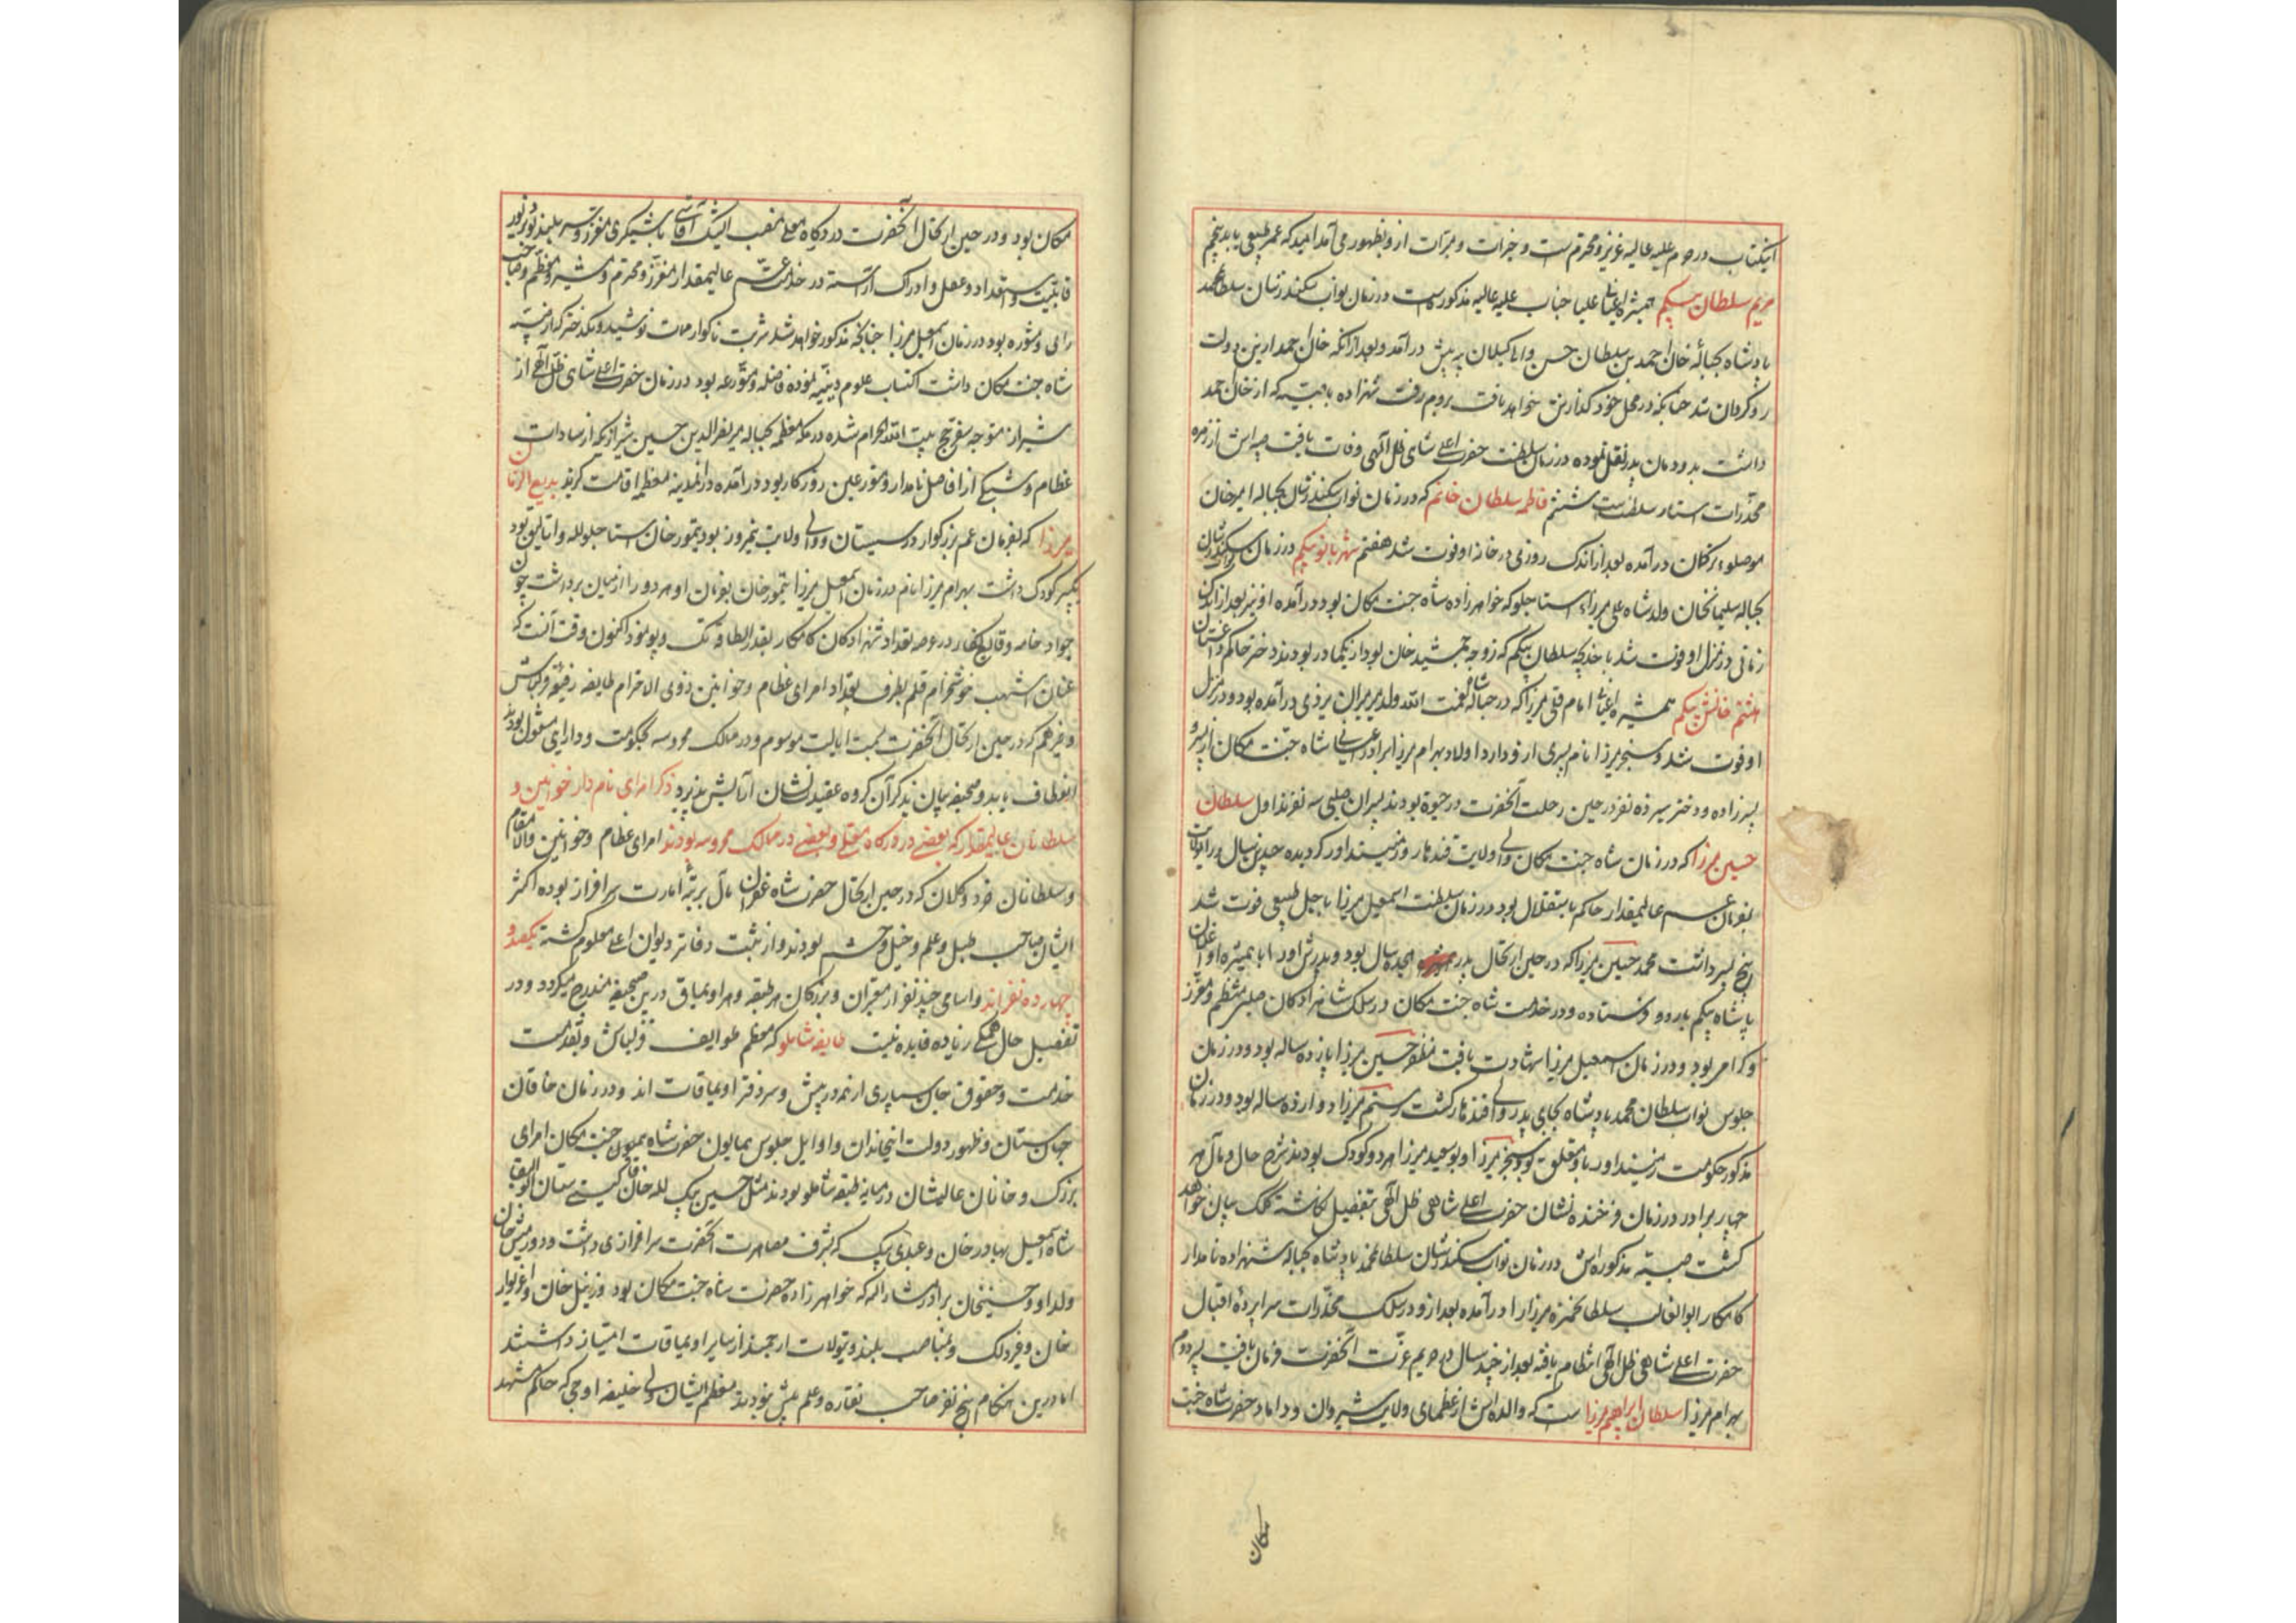 اینکتاب در حرم علیه عالیه عزیز و محترم است و خیرات و مبرات ازو بظهور می آمد امید که عمر طبیعی یابد پنجم
مریم سلطان بیکم همشیره اعیانی علیا جناب علیه عالیه مذکوره است در زمان نواب سکندر شان سلطان محمد
پادشاه بحباله خان احمد بن سلطان حسن والی کیلان به پیش درآمد و بعد ازانکه خان احمد ازین دولت
روکردان شد چنانکه در محل خود کذارش خواهد یافت بروم رفت شهزاده با صبیه که از خان احمد
داشت بدودمان پدر نقل نموده در زمان سلطنت حضرت اعلی شاهی ظل آلهی وفات یافت صبیه اش از زمره
مخدرات استار سلطنت است ششم فاطمه سلطان خانم که در زمان نواب سکندر شان بحباله امیر خان
موصلو ترکمان درآمده بعد از اندک روزی در خانه او فوت شد هفتم شهربانو بیکم در زمان نواب سکندر شان
بحباله سلیمانخان ولد شاه علی میرزاء استاجلو که خواهر زاده شاه جنت مکان بود درآمده او نیز بعد از اندک
زمانی در منزل او فوت شد با خدیجه سلطان بیکم که زوجه جمشید خان بود از یکمادر بودند دختر حاکم داغستان
هشتم خانش بیکم همشیره اعیانی امام قلی میرزا که در حباله شاه نعمت الله ولد میرمیران یزدی درآمده بود و در منزل
او فوت شد و سنجر میرزا نام پسری ازو دارد اولاد بهرام میرزا برادر اعیانی شاه جنت مکان از پسر و
پسرزاده و دختر سیزده نفر در حین رحلت آنحضرت در حیوة بودند پسران صلبی سه نفرند اول سلطان
حسین میرزا که در زمان شاه جنت مکان والی ولایت قندهار و زمینداور کردیده چندین سال در آنولایت
بفرمان عم عالیمقدار حاکم باستقلال بود در زمان سلطنت اسمعیل میرزا باجل طبیعی فوت شد
پنج پسر داشت محمد حسین میرزا که در حین ارتحال پدر هجده سال بود و پدرش او را با همشیره او اغلان
پاشاه بیکم باردو فرستاده و در خدمت شاه جنت مکان در سلک شاهزادکان صلبی منتظم و معزز
و کرامی بود و در زمان اسمعیل میرزا شهادت یافت مظفر حسین میرزا پانزده ساله بود و در زمان
جلوس نواب سلطان محمد پادشاه بجای پدر والی قندهار کشت رستم میرزا دوازده ساله بود و در زمان
مذکور حکومت زمینداور باو متعلق بود و سنجر میرزا و ابوسعید میرزا هر دو کودک بودند شرح حال و مآل هر
چهار برادر در زمان فرخنده نشان حضرت اعلی شاهی ظل آلهی بتفصیل نکاشته کلک بیان خواهد
کشت صبیه مذکوره اش در زمان نواب سکندر شان سلطان محمد پادشاه بحباله شهزاده نامدار
کامکار ابوالغالب سلطان حمزه میرزا درآمده بعد ازو در سلک مخدرات سراپرده اقبال
حضرت اعلی شاهی ظل آلهی انتظام یافته بعد از چند سال در حریم عزت آنحضرت فرمان یافت پسر دوم
بهرام میرزا سلطان ابراهیم میرزا است که والده اش از عظمای ولایت شیروان و داماد حضرت شاه جنت
مکان
مکان بود و در حین ارتحال آنحضرت در درکاه معلی بمنصب ایشیک آقاسی باشیکری معزز و مرتبه بلند بود و بزیور
قابلیت و استعداد و عقل و ادراک آراسته در خدمت عم عالیمقدار معزز و محترم و مشیر و معظم و صاحب
رای و مشوره بود در زمان اسمعیل میرزا چنانچه مذکور خواهد شد شربت ناکوار ممات نوشید و یکدختر که از صبیه
شاه جنت مکان داشت اکتساب علوم دینیه نموده فاضله و متورعه بود در زمان حضرت اعلی شاهی ظل آلهی از
شیراز متوجه سفر حج بیت الله الحرام شده در مکه معظمه بحباله میر نصرالدین حسین شیرازی که از سادات
عظام و بیشبهه از افاضل نامدار و متورعین روزکار بود درآمده در آنمدینه معظمه اقامت کزید بدیع الزمان
میرزا که بفرمان عم بزرکوار در سیستان و والی ولایت نیمروز بود تیمور خان استاجلو لله و اتالیق بود
یکپسر کودک داشت بهرام میرزا نام در زمان اسمعیل میرزا تیمور خان بفرمان او هر دو را از میان برداشت چون
جواد خامه وقایع نکار در عرصه تعداد شهزادکان کامکار بقدر الطاقه تک و پو نمود اکنون وقت آنست که
عنان اشهب خوشخرام قلم بطرف تعداد امرای عظام و خوانین ذوی الاحترام طایفه رفیعه قزلباش
و غیر هم که در حین ارتحال آنحضرت بسمت ایالت موسوم و در ممالک محروسه بحکومت و دارایی مشغول بودند
انعطاف یابد و صحیفه بیان بذکر آن کروه عقیدت نشان آرایش پذیرد ذکر امرای نام دار خوانین و
سلطانان عالیمقدار که بعضی در درکاه معلی و بعضی در ممالک محروسه بودند امرای عظام و خوانین والا مقام
و سلطانان خرد و کلان که در حین ارتحال حضرت شاه غفران مآل برتبه امارت سرافراز بوده اکثر
ایشان صاحب طبل و علم و خیل و حشم بودند و از ثبت دفاتر دیوان اعلی معلوم کشته یکصد و
چهارده نفراند و اسامی چند نفر از معتبران و بزرکان هر طبقه و هر اویماق درین صحیفه مندرج میکردد و در
تفصیل حال همکی زیاده فایده نیست طایفه شاملو که معظم طوایف قزلباش و بقدمت
خدمت و حقوق جان سپاری از همه در پیش و سردفتر اویماقات اند و در زمان خاقان
جهان ستان و ظهور دولت اینخاندان و اوایل جلوس همایون حضرت شاه جنت مکان امرای
بزرک و خانان عالیشان در میانه طبقه شاملو بودند مثل حسین بیک لله خاقان کیتی ستان ابوالبقا
شاه اسمعیل بهادر خان و عبدی بیک که بشرف مصاهرت آنحضرت سرافرازی داشت و دورمیش خان
ولد او و حسینخان برادر مشارالیه که خواهر زاده حضرت شاه جنت مکان بود و زینل خان و اغزیوار
خان و غیر ذلک و بمناصب بلند و تیولات ارجمند از سایر اویماقات امتیاز داشتند
اما درین هنکام پنج نفر صاحب نقاره و علم بیش نبودند معظم ایشان ولی خلیفه اوجی که حاکم مشهد